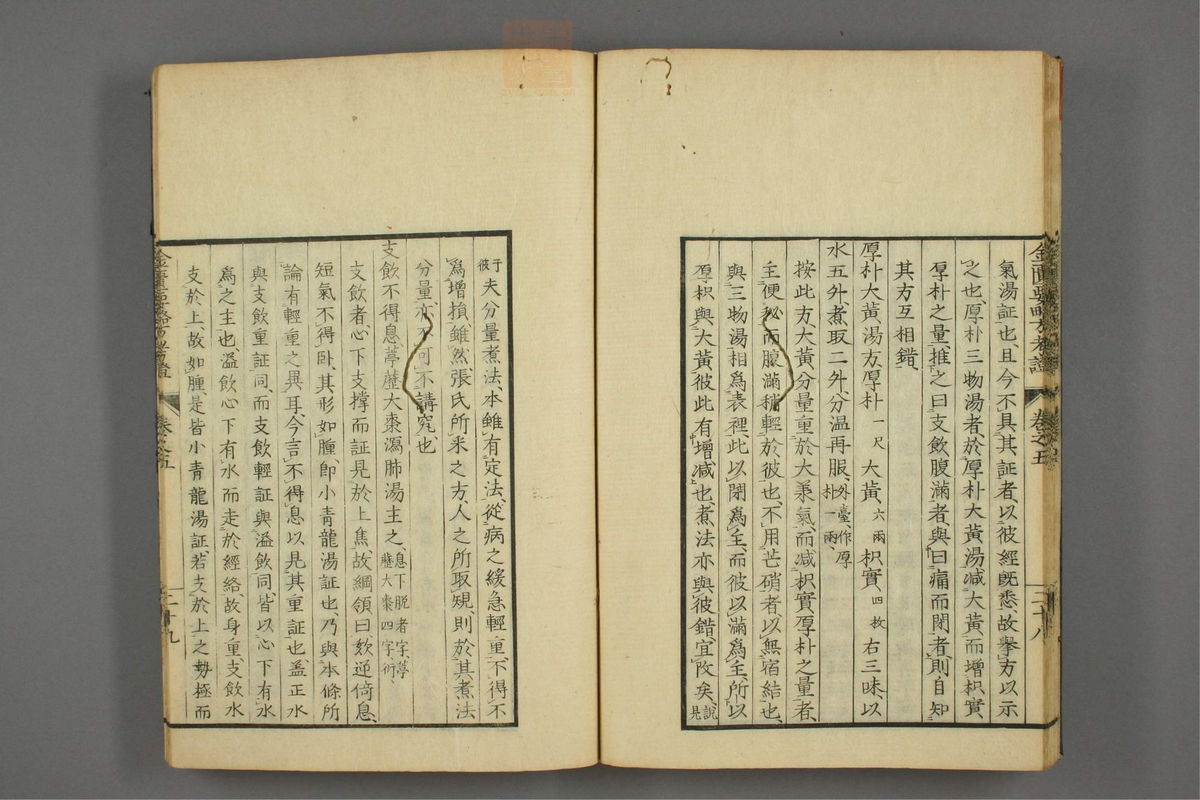 金匱要略方考證　卷之五　二十八
氣湯証也、且今不具其証者、以彼經既悉、故擧方以示
之也、厚朴三物湯者、於厚朴大黃湯減大黃、而增枳實、
厚朴之量、推之曰支飲腹滿者、與曰痛而閉者、則自知
其方互相錯、
厚朴大黃湯方、厚朴一尺　大黃六兩　枳實四枚　右三味以
水五升煮取二升、分溫再服、外臺、作厚朴一兩、
按此方、大黃分量重於大承氣、而減枳實厚朴之量者、
主便秘而腹滿稍輕於彼也、不用芒硝者、以無宿結也、
與三物湯相爲表裡、此以閉爲主、而彼以滿爲主、所以
厚枳與大黃彼此有增減也、煮法亦與彼錯、宜攺矣、說見
于彼夫分量煮法、本雖有定法、從病之緩急輕重、不得不
爲增損、雖然張氏所采之方、人之所取規、則於其煮法
分量、亦不可不講究也
支飲不得息、葶藶大棗瀉肺湯主之、息下脫者字、葶藶大棗四字衍、
支飲者、心下支撑而証見於上焦、故綱領曰欬逆倚息、
短氣不得臥、其形如腫、卽小青龍湯証也、乃與本條所
論有輕重之異耳、今言不得息以見其重証也、盖正水
與支飲重証同、而支飲輕証與溢飲同、皆以心下有水
爲之主也、溢飲心下有水而走於經絡、故身重、支飲水
支於上、故如腫、是皆小青龍湯証、若支於上之勢極而
金匱要略方考證　卷之五　二十九